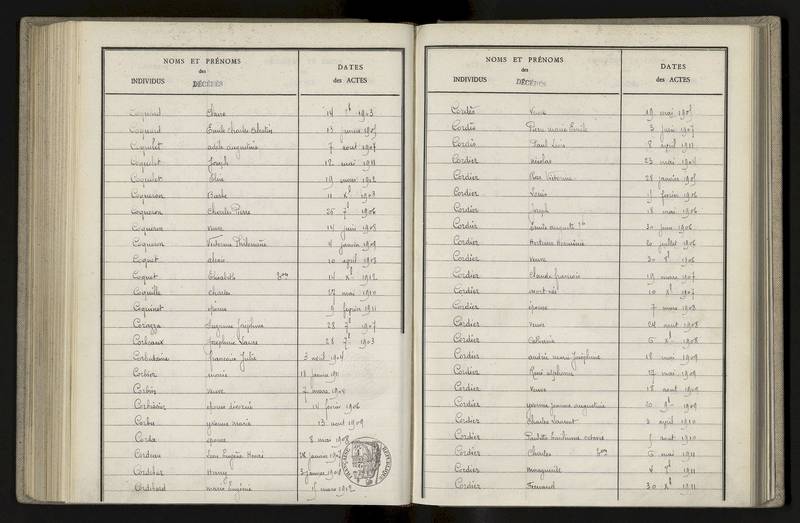 NOMS ET PRÉNOMS
des
INDIVIDUS DÉCÉDÉS
DATES
des ACTES
Coquard Claire 14 1903
Coquard Emile Charles Célestin 13 janvier 1905
Coquelet adèle augustine 7 aout 1907
Coquelet Joseph 12 mai 1911
Coquelet 19 mars 1912
Coqueron 11 Xb 1903
Coqueron Charles Pierre 25 7b 1906
Coqueron veuve 14 juin 1908
Coqueron Victorine Philomène 4 janvier 1909
Coquet alexis 10 avril 1903
Coquet Elisabeth 14 Xb 1912
Coquille Charles 27 mai 1910
Coquinet épouse 9 février 1911
Corazza Suzanne Joséphine 28 7b 1907
Corbeaux Joséphine Laure 28 7b 1903
Françoise Julie 3 avril 1904
Corbier marie 18 janvier 1911
Corbin veuve 7 mars 1904
épouse divorcée 14 février 1906
Corbu yvonne marie 13 aout 1909
Corda épouse 8 mai 1908
Cordeau Léon Eugène Henri 28 janvier
Cordelier Henry 3 janvier 1908
marie Eugénie 15 mars 1902
NOMS ET PRÉNOMS
des
INDIVIDUS DÉCÉDÉS
DATES
des ACTES
Cordès Veuve 19 mai 1905
Cordès Pierre marie Emile 3 juin 1907
Cordès Paul Louis 8 avril 1911
Cordier nicolas 23 mai 1904
Cordier Victorine 28 janvier 1905
Cordier Louis 5 février 1906
Cordier Joseph 18 mai 1906
Cordier Emile auguste 30 juin 1906
Cordier Hortense Herminie 20 juillet 1906
Cordier veuve 30 1906
Cordier Claude françois 19 mars 1907
Cordier mort né 10 Xb 1907
Cordier épouse 7 mars 1908
Cordier veuve 24 aout 1908
Cordier 6 Xb 1908
Cordier andrée marie Joséphine 18 mai 1909
Cordier René alphonse 27 mai 1909
Cordier Veuve 18 aout 1909
Cordier yvonne jeanne augustine 20 9b 1909
Cordier Charles Laurent 3 avril 1910
Cordier Paulette 5 aout 1910
Cordier Charles 6 mai 1911
Cordier marguerite 4 7b 1911
Cordier Fernand 30 Xb 1911